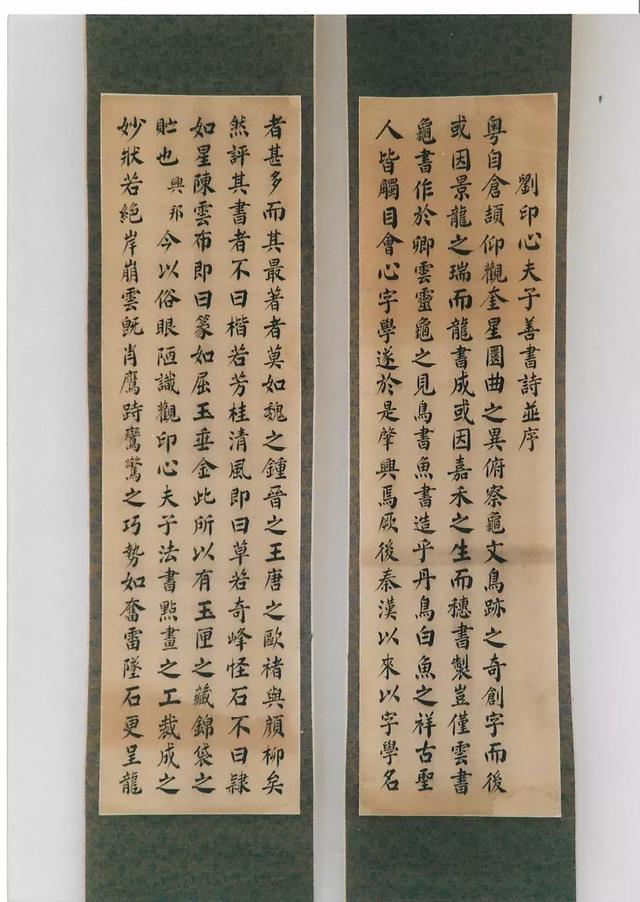 劉印心夫子善書詩並序
粵自倉頡仰觀奎星圜曲之異俯察龜文鳥跡之奇創字而後
或因景龍之瑞而龍書成或因嘉禾之生而穗書製豈僅雲書
龜書作於卿雲靈龜之見鳥書魚書造乎丹鳥白魚之祥古聖
人皆觸目會心字學遂於是肇興焉厥後秦漢以來以字學名
者甚多而其最著者莫如魏之鍾晉之王唐之歐褚與顏柳矣
然評其書者不曰楷若芳桂清風即曰草若奇峰怪石不曰隸
如星陳雲布即曰篆如屈玉垂金此所以有玉匣之藏錦袋之
貯也興邦今以俗眼陋識觀印心夫子法書點畫之工裁成之
妙狀若絕岸崩雲既肖鷹跱鸞驚之巧勢如奮雷墜石更呈龍